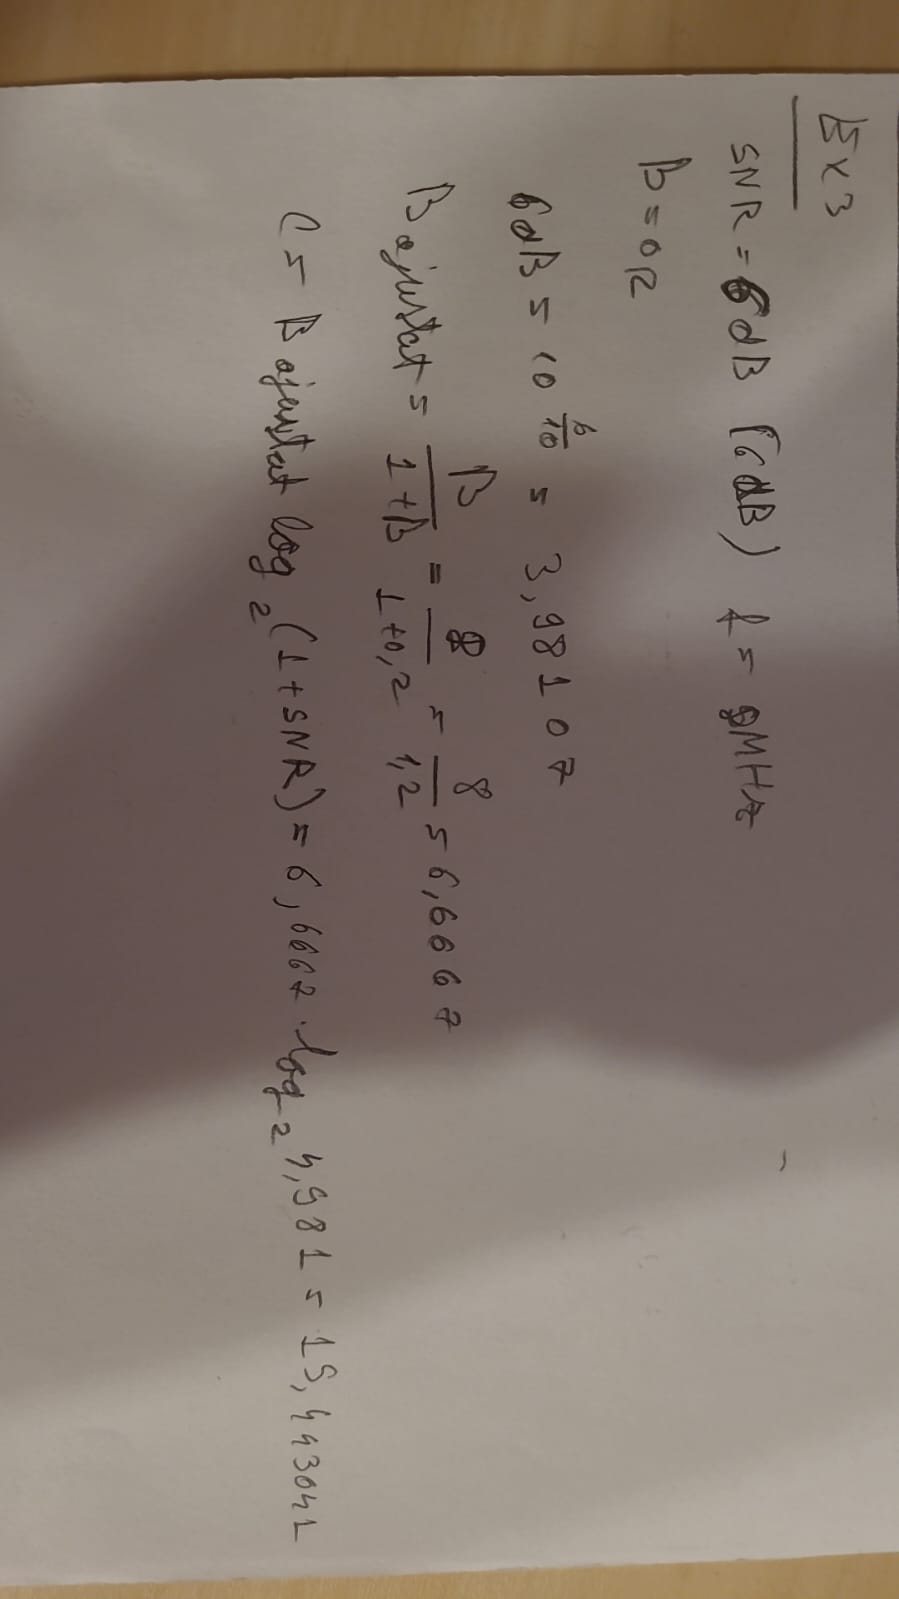 Ex3
SNR = 6dB (6dB) f = 8MHz
B = 0,2
6dB = 10^(6/10) = 3,98107
B ajustat = B/(1+B) = 8/(1+0,2) = 8/1,2 = 6,6667
C = B ajustat log₂(1+SNR) = 6,6667 · log₂ 4,981 = 15,443041